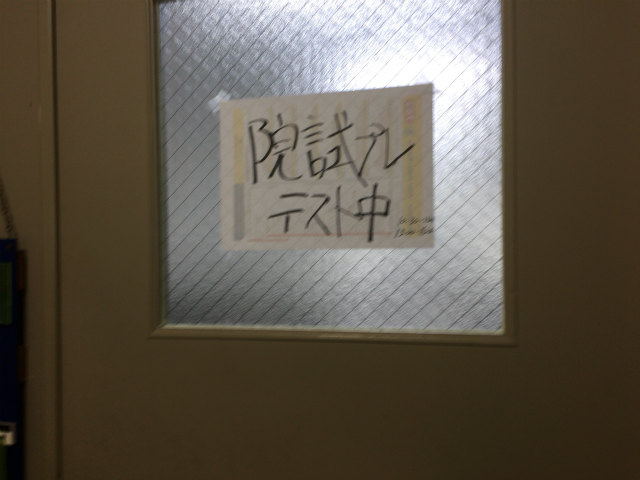 院試プレ
テスト中